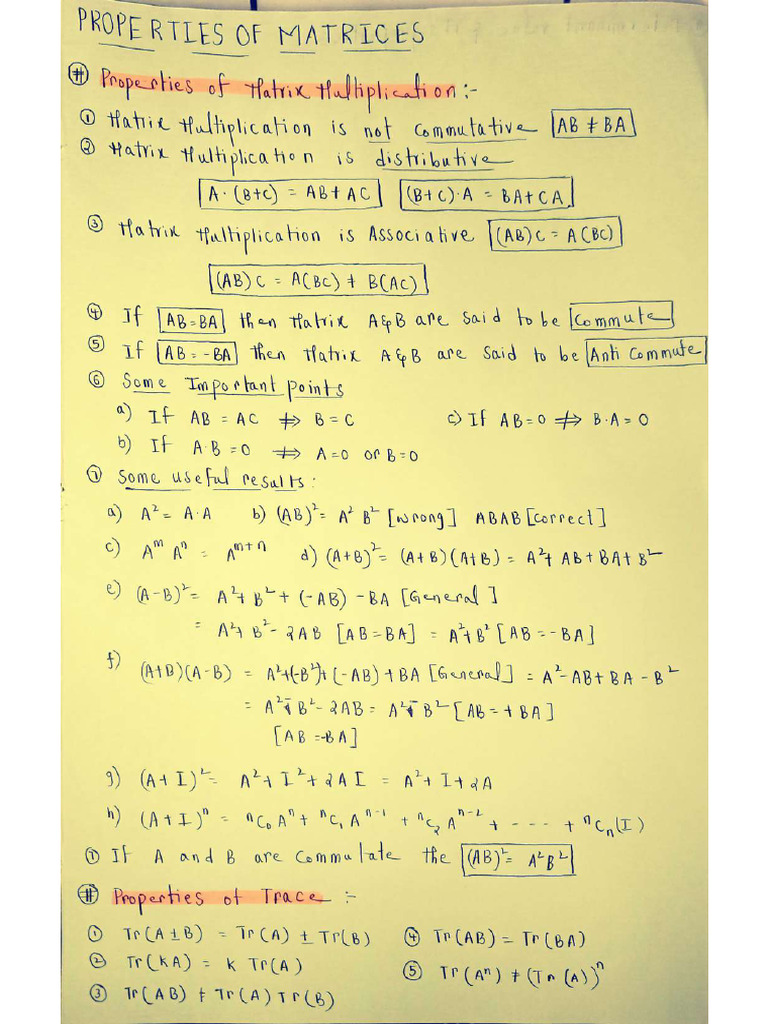 PROPERTIES OF MATRICES
# Properties of Matrix Multiplication :-
① Matrix Multiplication is not commutative AB ≠ BA
② Matrix Multiplication is distributive
A·(B+C) = AB+AC (B+C)·A = BA+CA
③ Matrix Multiplication is Associative (AB)C = A(BC)
(AB)C = A(BC) ≠ B(AC)
④ If AB=BA then Matrix A&B are said to be Commute
⑤ If AB=-BA then Matrix A&B are said to be Anti Commute
⑥ Some Important points
a) If AB = AC ⇏ B = C c) If AB=0 ⇏ B·A=0
b) If A·B=0 ⇏ A=0 or B=0
⑦ Some useful results:
a) A² = A·A b) (AB)² = A² B² [wrong] ABAB [correct]
c) Aᵐ Aⁿ = Aᵐ⁺ⁿ d) (A+B)² = (A+B)(A+B) = A²+AB+BA+B²
e) (A-B)² = A²+B²+(-AB)-BA [General]
= A²+B²-2AB [AB=BA] = A²+B² [AB=-BA]
f) (A+B)(A-B) = A²+(-B²)+(-AB)+BA [General] = A²-AB+BA-B²
= A²-B²-2AB = A²-B² [AB=+BA]
[AB=-BA]
g) (A+I)² = A²+I²+2AI = A²+I+2A
h) (A+I)ⁿ = ⁿC₀Aⁿ + ⁿC₁Aⁿ⁻¹ + ⁿC₂Aⁿ⁻² + ---- + ⁿCₙ(I)
① If A and B are commutate the (AB)² = A²B²
# Properties of Trace :-
① Tr(A±B) = Tr(A) ± Tr(B) ④ Tr(AB) = Tr(BA)
② Tr(KA) = K Tr(A) ⑤ Tr(Aⁿ) ≠ (Tr(A))ⁿ
③ Tr(AB) ≠ Tr(A)Tr(B)